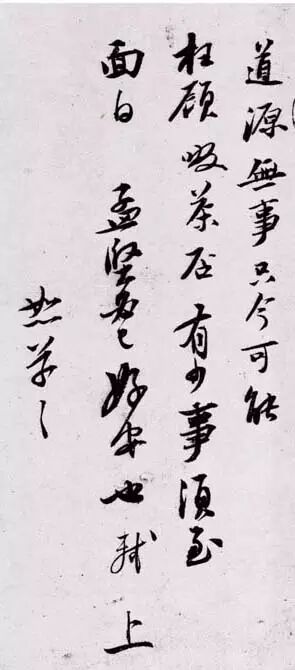 道源無事只今可能
枉顧啜茶否有少事須至
面白 孟堅必已好安也軾上
恕草草